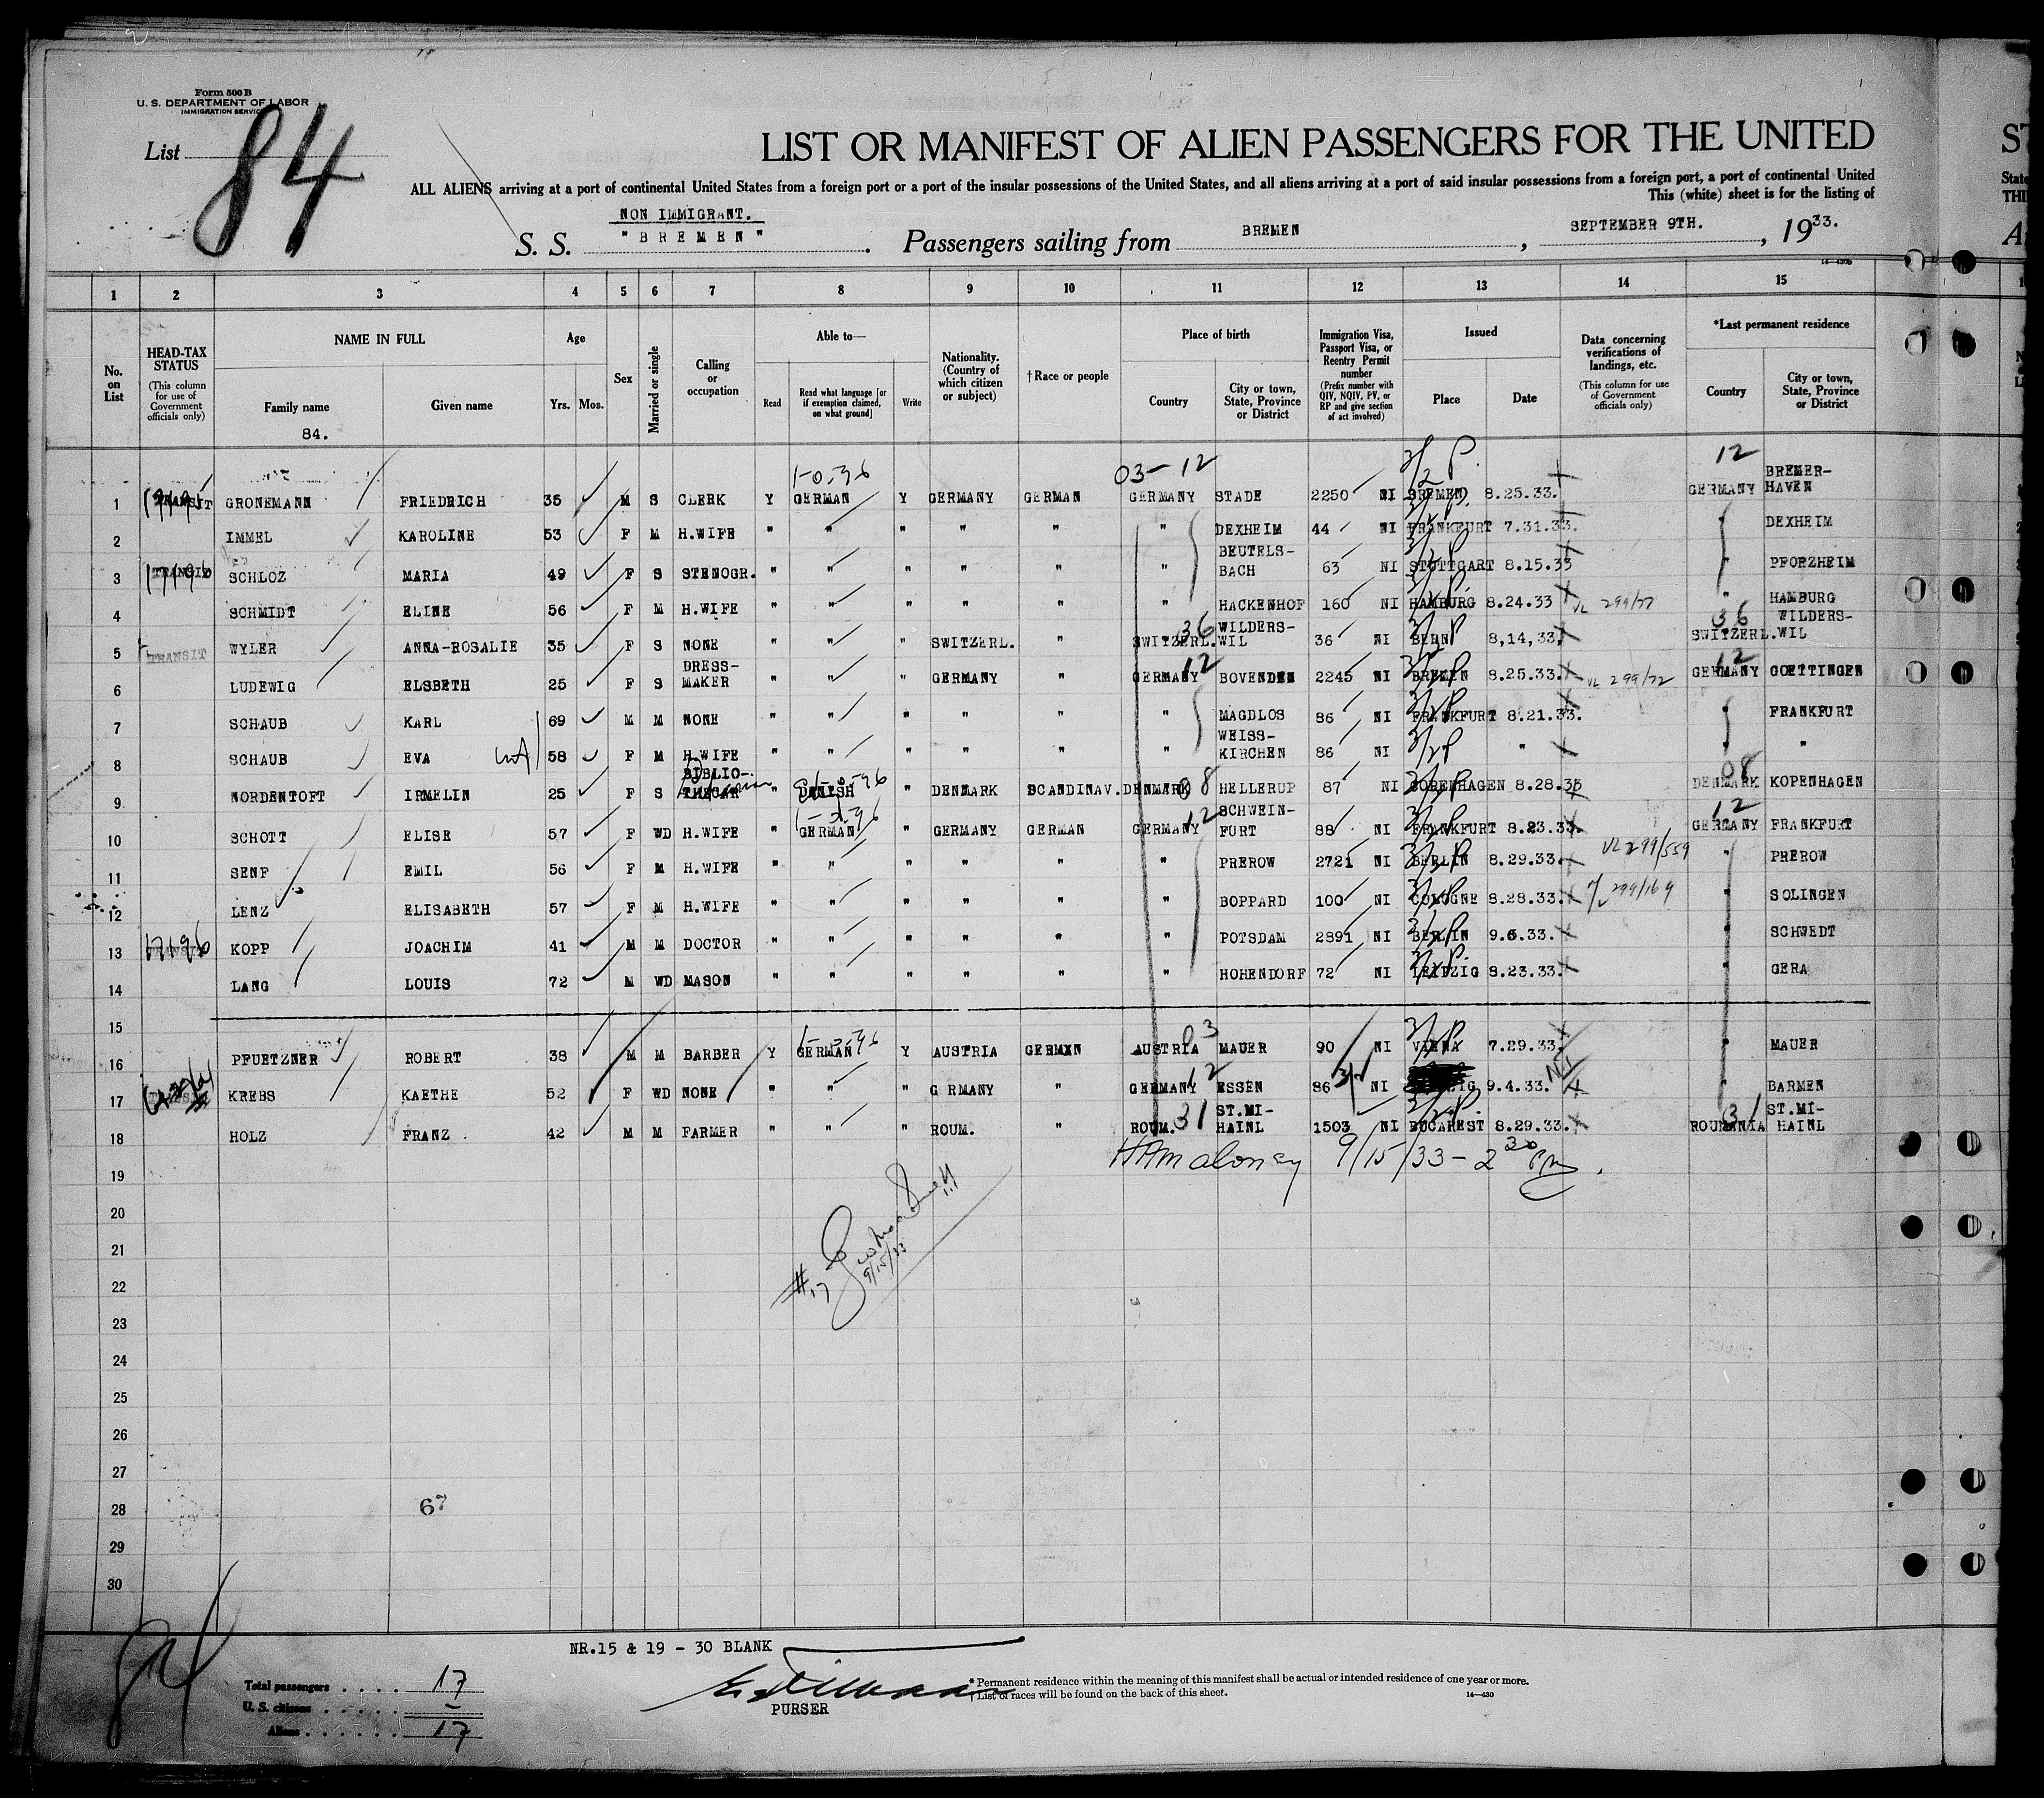 Form 500 B
U. S. DEPARTMENT OF LABOR
IMMIGRATION SERVICE
List 84
LIST OR MANIFEST OF ALIEN PASSENGERS FOR THE UNITED
ALL ALIENS arriving at a port of continental United States from a foreign port or a port of the insular possessions of the United States, and all aliens arriving at a port of said insular possessions from a foreign port, a port of continental United
This (white) sheet is for the listing of
NON IMMIGRANT.
S. S. "BREMEN". Passengers sailing from BREMEN, SEPTEMBER 9TH., 1933.
1 2 3 4 5 6 7 8 9 10 11 12 13 14 15
No. on List
HEAD-TAX STATUS (This column for use of Government officials only)
NAME IN FULL
Family name
84.
Given name
Age
Yrs. Mos.
Sex
Married or single
Calling or occupation
Able to—
Read
Read what language [or if exemption claimed, on what ground]
Write
Nationality. (Country of which citizen or subject)
†Race or people
Place of birth
Country
City or town, State, Province or District
Immigration Visa, Passport Visa, or Reentry Permit number (Prefix number with QIV, NQIV, PV, or RP and give section of act involved)
Issued
Place
Date
Data concerning verifications of landings, etc. (This column for use of Government officials only)
*Last permanent residence
Country
City or town, State, Province or District
1-0-96 03-12 12
1 TRANSIT GRONEMANN FRIEDRICH 35 M S CLERK Y GERMAN Y GERMANY GERMAN GERMANY STADE 2250 NI BREMEN 8.25.33. GERMANY BREMER-HAVEN
2 IMMEL KAROLINE 53 F M H.WIFE " " " " " " DEXHEIM 44 NI FRANKFURT 7.31.33. " DEXHEIM
3 TRANSIT SCHLOZ MARIA 49 F S STENOGR. " " " " " " BEUTELS-BACH 63 NI STUTTGART 8.15.33 " PFORZHEIM
4 SCHMIDT ELINE 56 F M H.WIFE " " " " " " HACKENHOF 160 NI HAMBURG 8.24.33 VL 299/77 " HAMBURG
5 TRANSIT WYLER ANNA-ROSALIE 35 F S NONE " " " SWITZERL. " SWITZERL. 36 WILDERS-WIL 36 NI BERN 8,14,33. SWITZERL. 36 WILDERS-WIL
6 LUDEWIG ELSBETH 25 F S DRESS-MAKER " " " GERMANY " GERMANY 12 BOVENDEN 2245 NI BREMEN 8.25.33. VL 299/72 GERMANY 12 GOETTINGEN
7 SCHAUB KARL 69 M M NONE " " " " " " MAGDLOS 86 NI FRANKFURT 8.21.33. " FRANKFURT
8 SCHAUB EVA 58 F M H.WIFE " " " " " " WEISS-KIRCHEN 86 NI " " "
9 NORDENTOFT IRMELIN 25 F S BIBLIO-THECAR " DANISH " DENMARK SCANDINAV. DENMARK 08 HELLERUP 87 NI COPENHAGEN 8.28.33 DENMARK 08 KOPENHAGEN
10 SCHOTT ELISE 57 F WD H.WIFE " GERMAN " GERMANY GERMAN GERMANY 12 SCHWEIN-FURT 88 NI FRANKFURT 8.23.33. GERMANY 12 FRANKFURT
11 SENF EMIL 56 F M H.WIFE " " " " " " PREROW 2721 NI BERLIN 8.29.33. VL 299/559 " PREROW
12 LENZ ELISABETH 57 F M H.WIFE " " " " " " BOPPARD 100 NI COLOGNE 8.28.33. 299/169 " SOLINGEN
13 TRANSIT KOPP JOACHIM 41 M M DOCTOR " " " " " " POTSDAM 2891 NI BERLIN 9.6.33. " SCHWEDT
14 LANG LOUIS 72 M WD MASON " " " " " " HOHENDORF 72 NI LEIPZIG 8.23.33. " GERA
15
16 PFUETZNER ROBERT 38 M M BARBER Y GERMAN Y AUSTRIA GERMAN AUSTRIA 03 MAUER 90 NI VIENA 7.29.33. " MAUER
17 KREBS KAETHE 52 F WD NONE " " " G RMANY " GERMANY 12 ESSEN 86 NI 9.4.33. " BARMEN
18 HOLZ FRANZ 42 M M FARMER " " " ROUM. " ROUM. 31 ST.MI-HAINL 1503 NI BUCAREST 8.29.33. ROUMANIA 31 ST.MI-HAINL
19 HAMaloney 9/15/33 - 2 30 Pm.
20
21
22 #17 9/15/33
23
24
25
26
27
28 67
29
30
84
NR.15 & 19 - 30 BLANK
Total passengers . . . . 17
U. S. citizens . . . . . -
Aliens . . . . . . 17
PURSER
* Permanent residence within the meaning of this manifest shall be actual or intended residence of one year or more.
† List of races will be found on the back of this sheet.
14—430